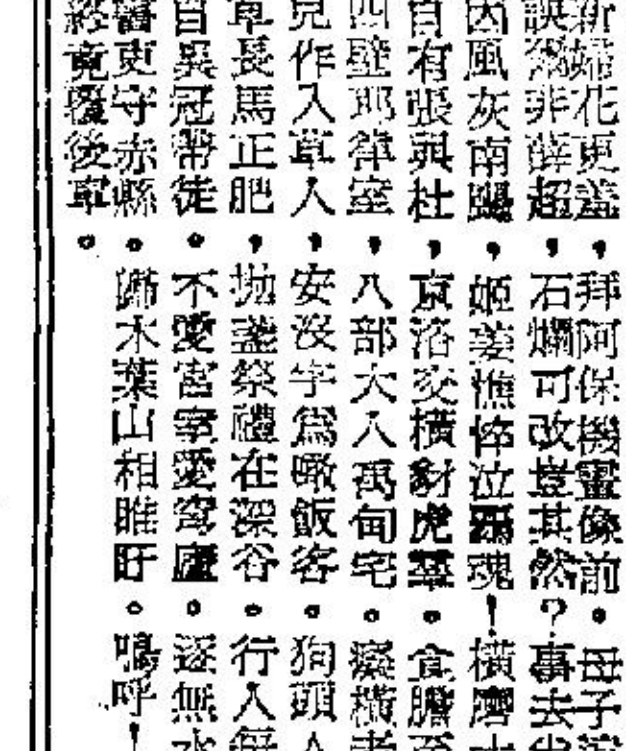 新婦花更羞，拜阿保機畫像前。母子
誤衛非薛超，石爛可改豈其然？事去
因風灰南颺，姬姜憔悴泣羈魂！橫磨
自有張與杜，京洛交橫豺虎羣。食膽
四壁耶律室，八部大人禹甸宅。
兒作入草人，安沒字爲噉飯客。狗頭
草長馬正肥，拋盞祭禮在深谷。行人
自異冠帶徒。不愛宮室愛穹廬。逐無水
醫吏守赤縣。歸木葉山相睢盱。嗚呼！
終竟覆後車。